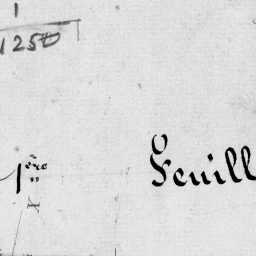 1
1250
1ère
Feuill